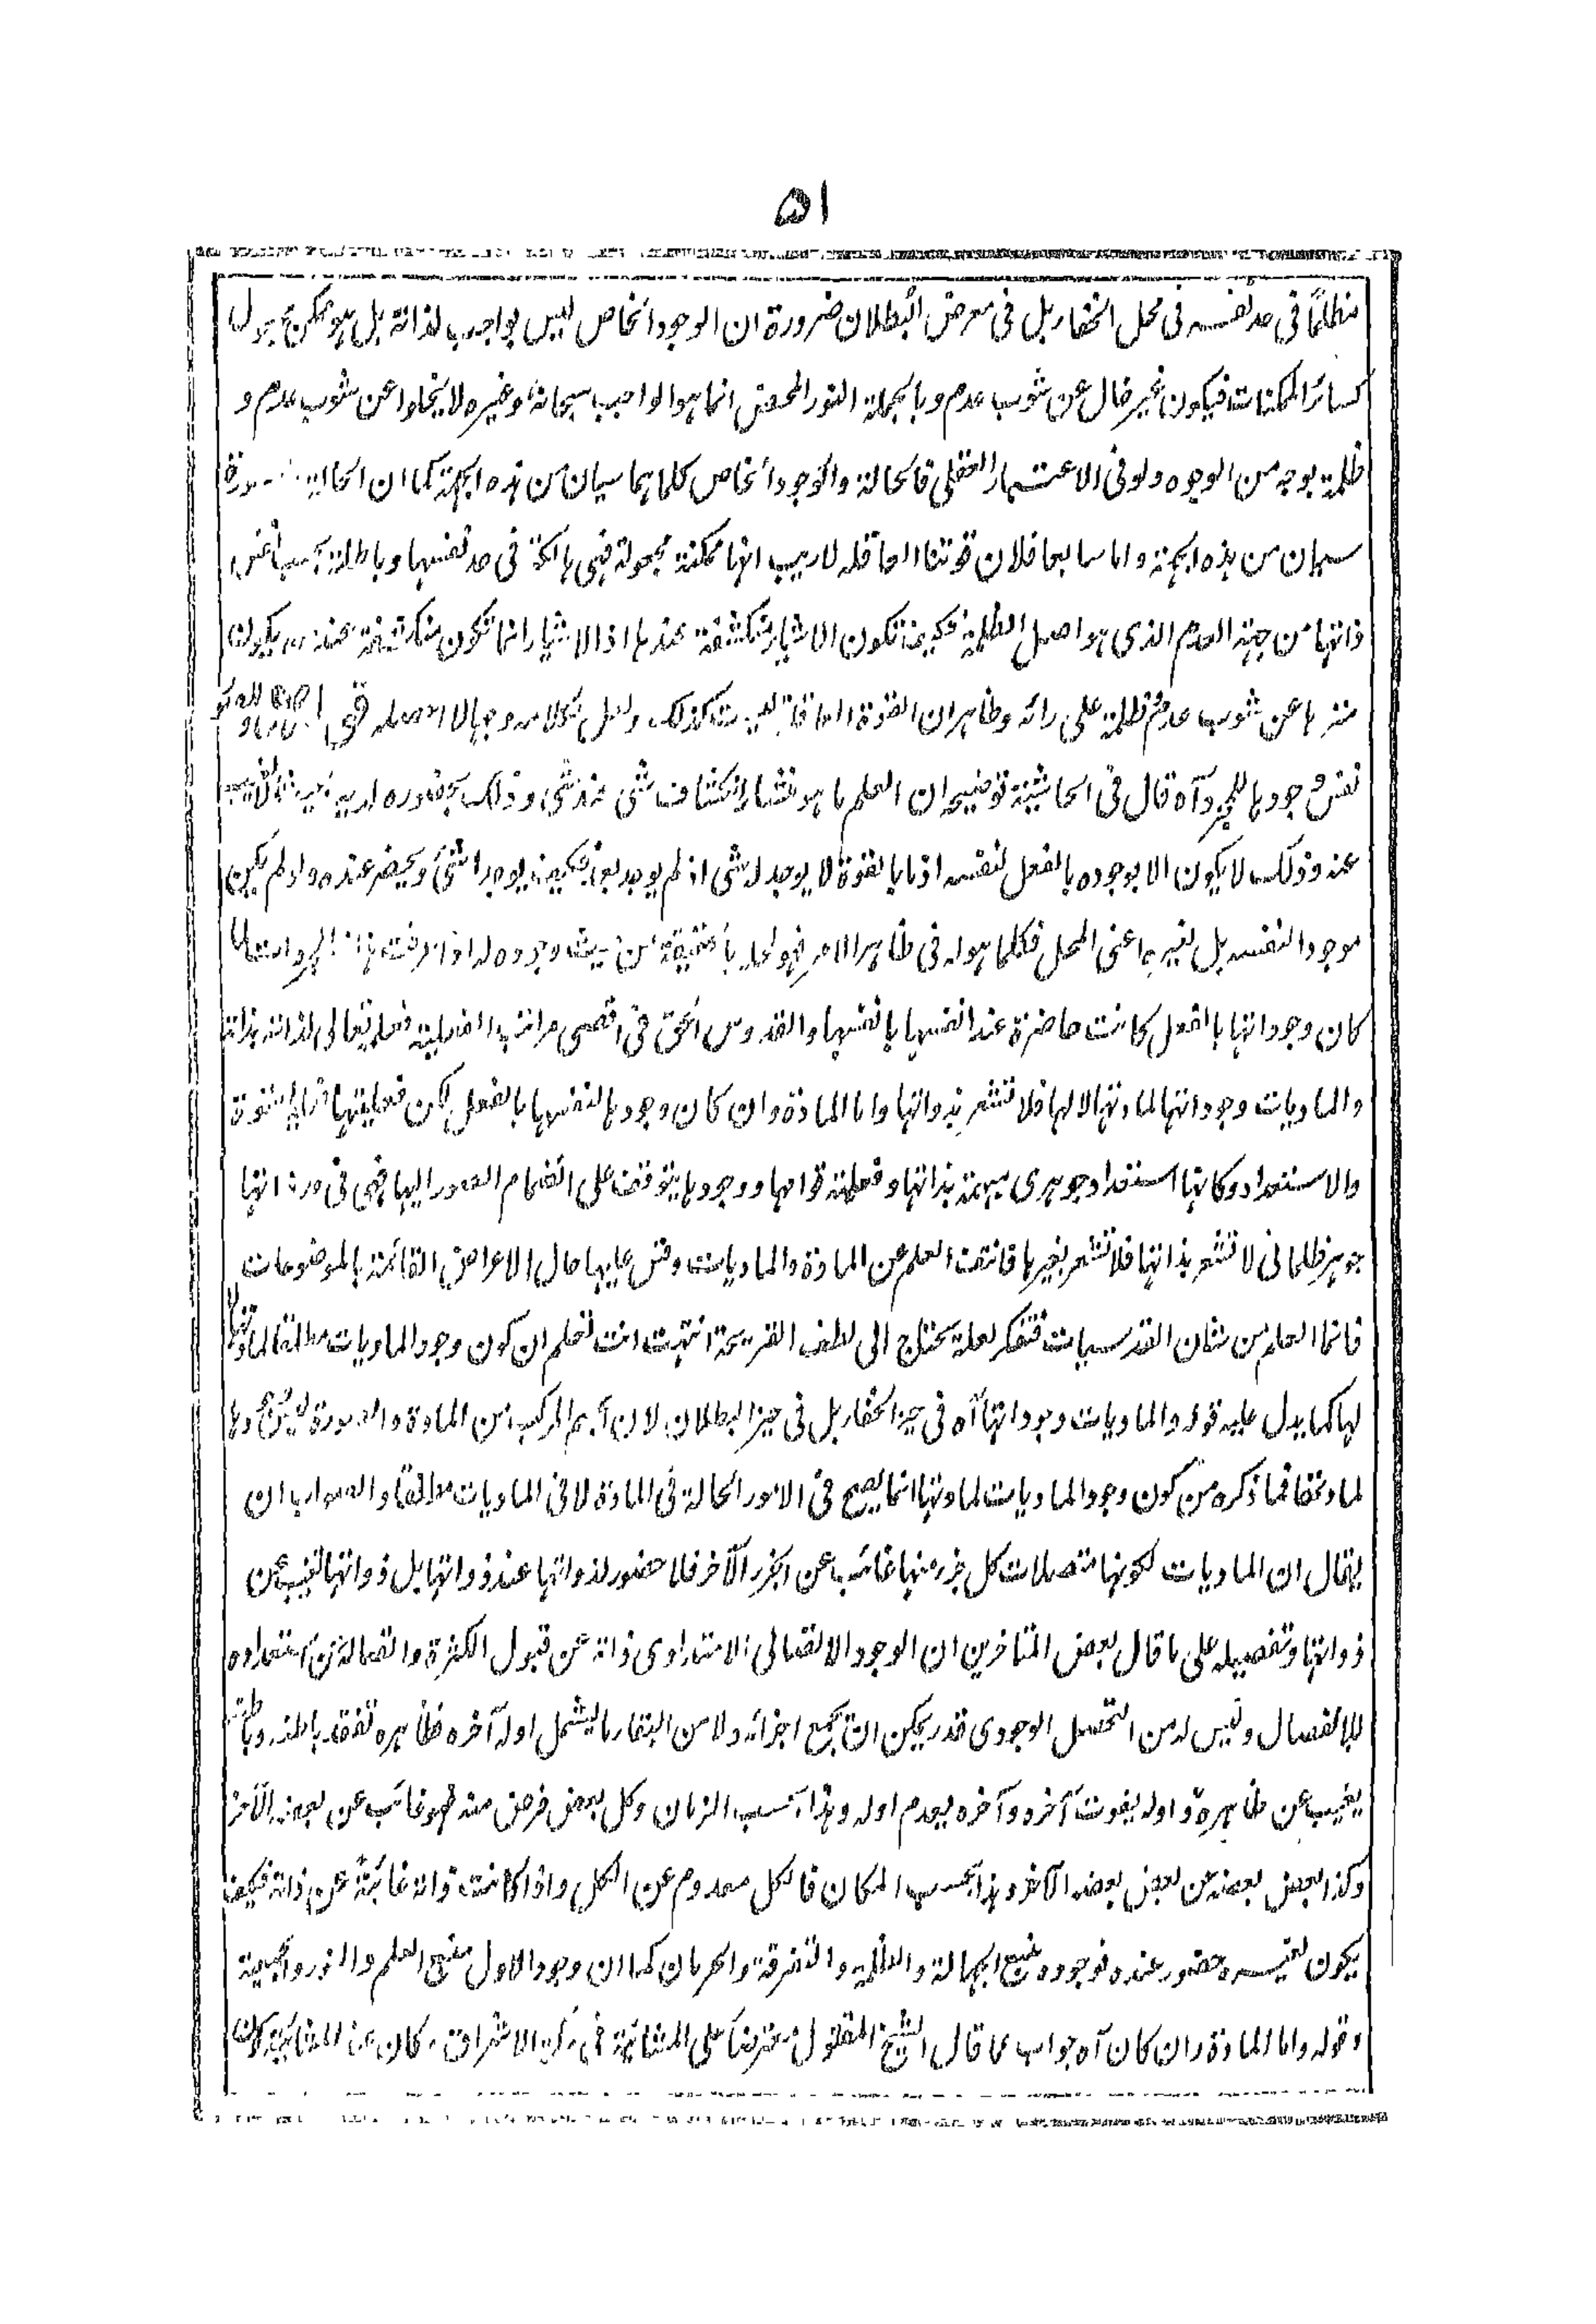 ٥١
مظلمًا فى حد نفسه فى محل الخفاء بل فى معرض البطلان ضرورة ان الوجود الخاص ليس بواجب لذاته بل هو ممكن مجعول
كسائر الممكنات فيكون غير خال عن شوب عدم وبالجملة النور المحض انما هو الواجب سبحانه وغيره لا يخلوا عن شوب عدم و
ظلمة بوجه من الوجوه ولو فى الاعتبار العقلى فالحالة والوجود الخاص كلاهما سيان من هذه الجهة كما ان الحالة
سيان من هذه الجهة واما سابعا فلان قوتنا العاقله لا ريب انها ممكنة مجعولة فهى هالكة فى حد نفسها وباطلة بحسب
ذاتها من جهة العدم الذى هو اصل الظلمة فكيف تكون الاشياء منكشفة عندها اذ الاشياء انما تكون منكشفة عند يكون
منزها عن شوب عدم وظلمة على رائه وظاهر ان القوة العاقلة ليست كذلك ولعل لكلامه وجها لا
نفس وجودها للمجرد آه قال فى الحاشية توضيحه ان العلم ما هو منشأ انكشاف شئ عند شئ وذلك بحضوره لديه
عنده وذلك لا يكون الا بوجوده بالفعل لنفسه اذ ما بالقوة لا يوجد له شئ اذ لم يوجد بعد فكيف يوجد له شئ ويحضر عنده ولو لم يكن
موجودا لنفسه بل لغيره اعنى المحل فكلما هو له فى ظاهر الامر فهو لمحله بالحقيقة من حيث وجوده له اذا عرفت هذا
كان وجوداتها بالفعل كانت حاضرة عند انفسها بانفسها والقدوس الحق فى اقصى مراتب الفعلية فعلمه تعالى لذاته بذاته
والماديات وجوداتها لمادتها لا لها فلا تشعر بذواتها واما المادة وان كان وجودها لنفسها بالفعل لكن فعليتها القوة
والاستعداد وكانها استعداد جوهرى مبهمة بذاتها وفعلية قوامها ووجودها يتوقف على انضمام الصور اليها فهى فى ذاتها
جوهر ظلمانى لا تشعر بذاتها فلا تشعر بغيرها فانتفت العلم عن المادة والماديات وقس عليها حال الاعراض القائمة بالموضوعات
فانما العلم من شان القدسيات فتفكر لعله يحتاج الى لطف القريحة انتهت انت تعلم ان كون وجود الماديات مطلقا لمادتها
لها كما يدل عليه قوله والماديات وجوداتها آه فى حيز الخفاء بل فى حيز البطلان لان الجسم المركب من المادة والصورة ليس وجوده
لمادته فما ذكره من كون وجود الماديات لمادتها انما يصح فى الامور الحالة فى المادة لا فى الماديات مطلقا والصواب ان
يقال ان الماديات لكونها متصلات كل جزء منها غائب عن الجزء الآخر فلا حضور لذواتها عند ذواتها بل ذواتها تغيب عن
ذواتها وتفصيله على ما قال بعض المتاخرين ان الوجود الاتصالى الامتدادى ذاته عن قبول الكثرة واتصاله عن استعداده
للانفصال وليس له من التحصل الوجودى قدر يمكن ان تجمع اجزائه ولا من البقاء ما يشمل اوله آخره فظاهره تفقد باطنه وباطنه
يغيب عن ظاهره و اوله يفوت آخره وآخره يعدم اوله وهذا بحسب الزمان وكل بعض فرض منه فهو غائب عن بعضه الآخر
وكذا بعض بعضه عن بعض بعضه الآخر وهذا بحسب المكان فالكل معدوم عن الكل واذا كانت ذاته غائبة عن ذاته فكيف
يكون لغيره حضور عنده فوجوده منبع الجهالة والظلمة والتفرقة والحرمان كما ان وجود الاول منبع العلم والنور والجمعية
وقوله واما المادة وان كان آه جواب عما قال الشيخ المقتول معترضا على المشائية فى حكمة الاشراق